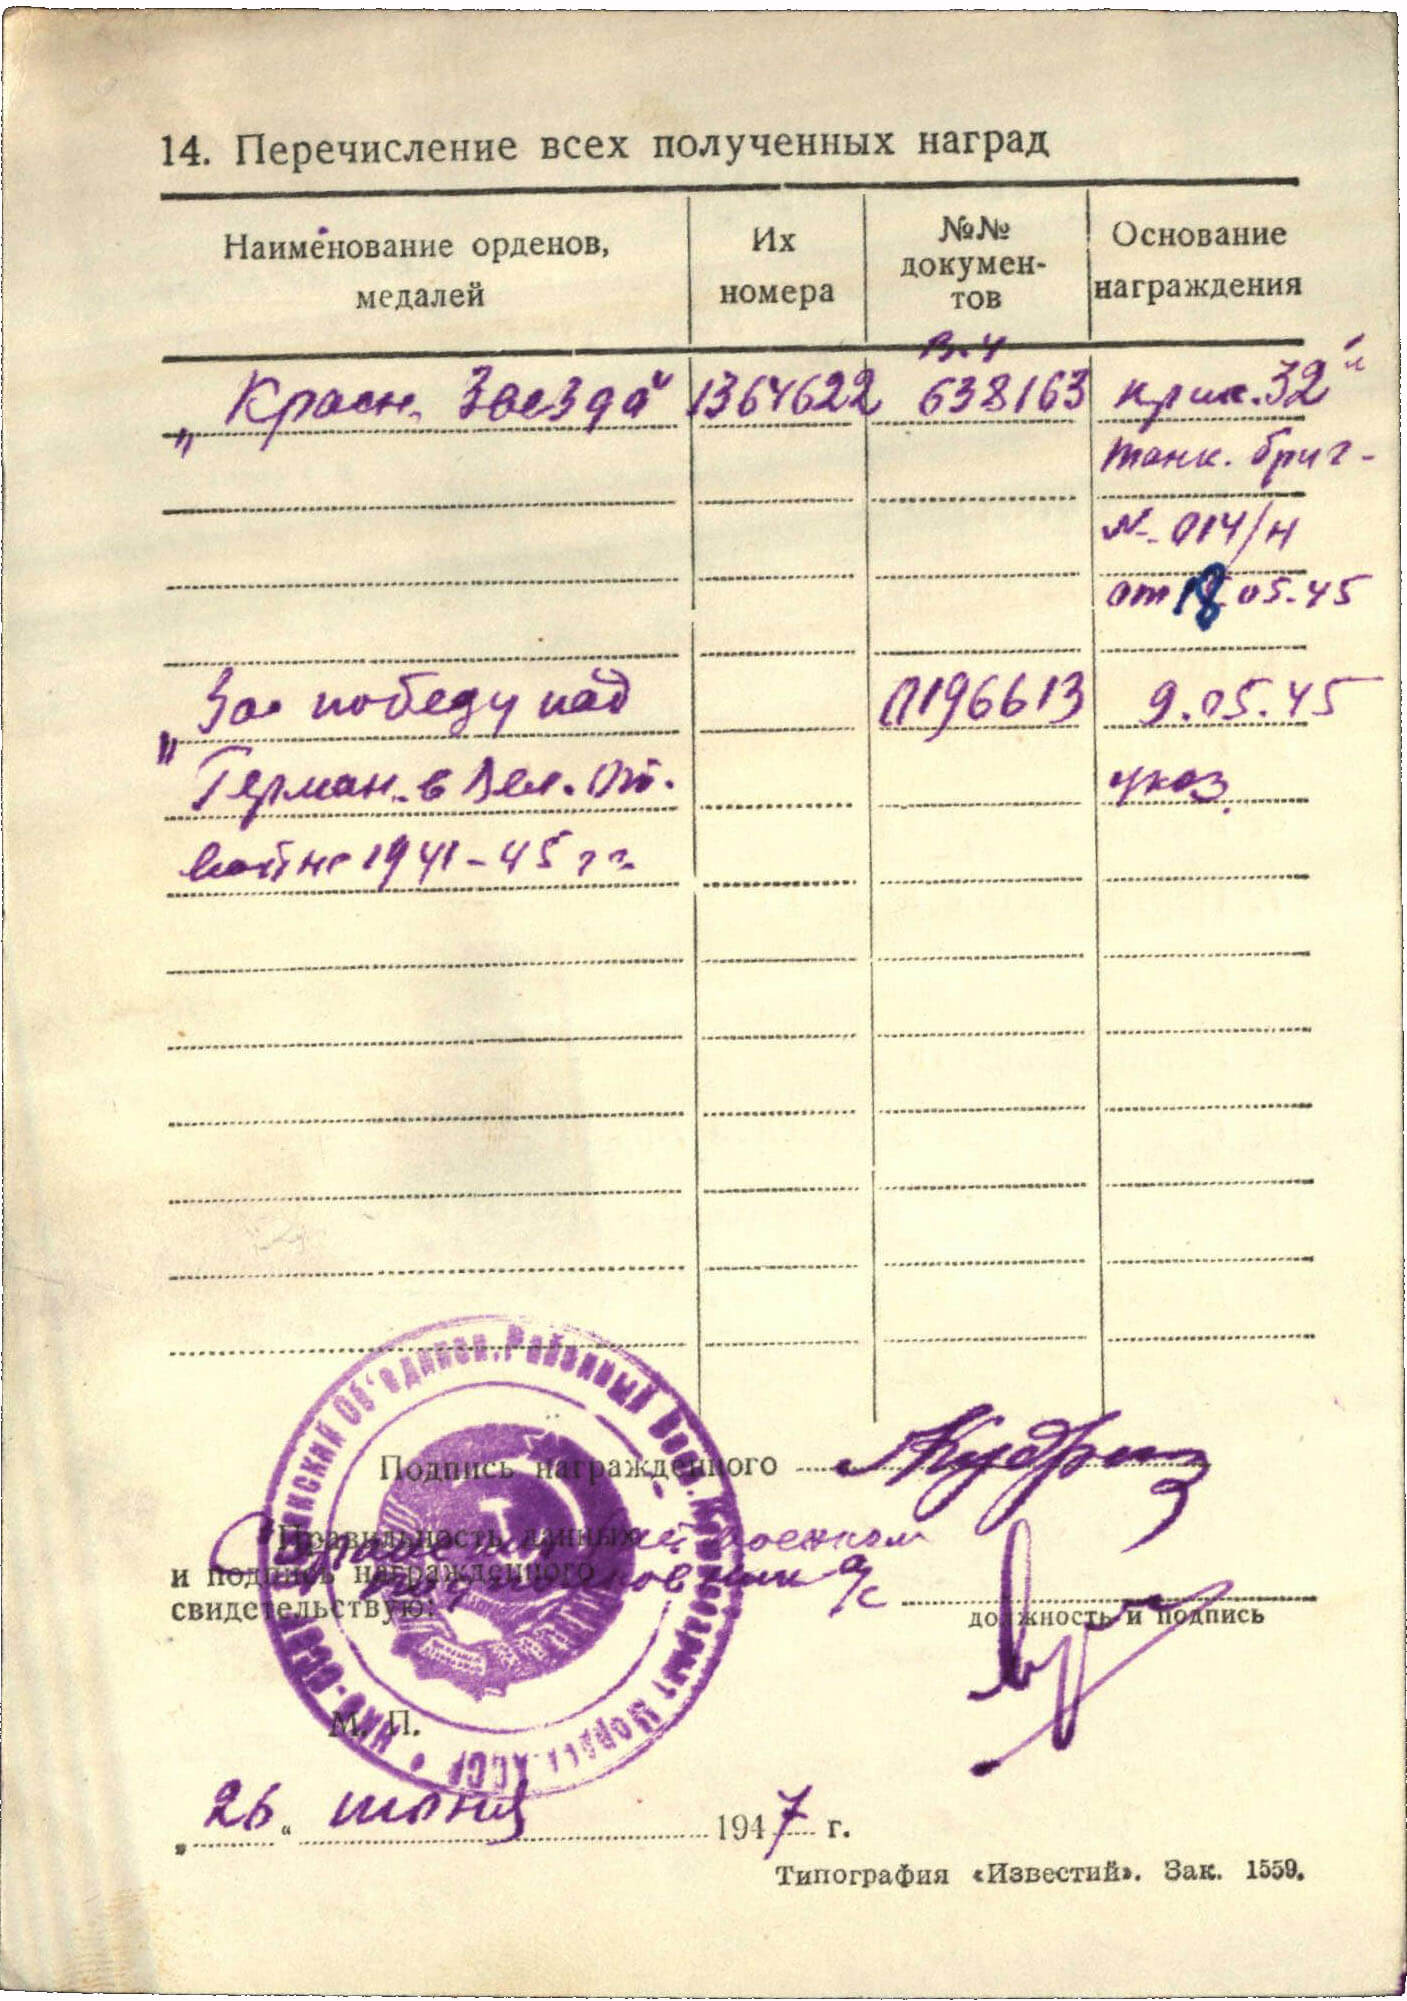 14. Перечисление всех полученных наград
Наименование орденов,
медалей
Их
номера
№№
докумен-
тов
Основание
награждения
„Красн. Звезда" 1364622 638163 прик. 32й
танк. бриг-
№ 014/н
от 18.05.45
„За победу над П196613 9.05.45
Герман. в Вел. От. указ.
войне 1941-45 гг.
Подпись награжденного
Правильность данных
и подпись награжденного
свидетельствую:
должность и подпись
М. П.
„26" июня 1947 г.
Типография «Известий». Зак. 1559.